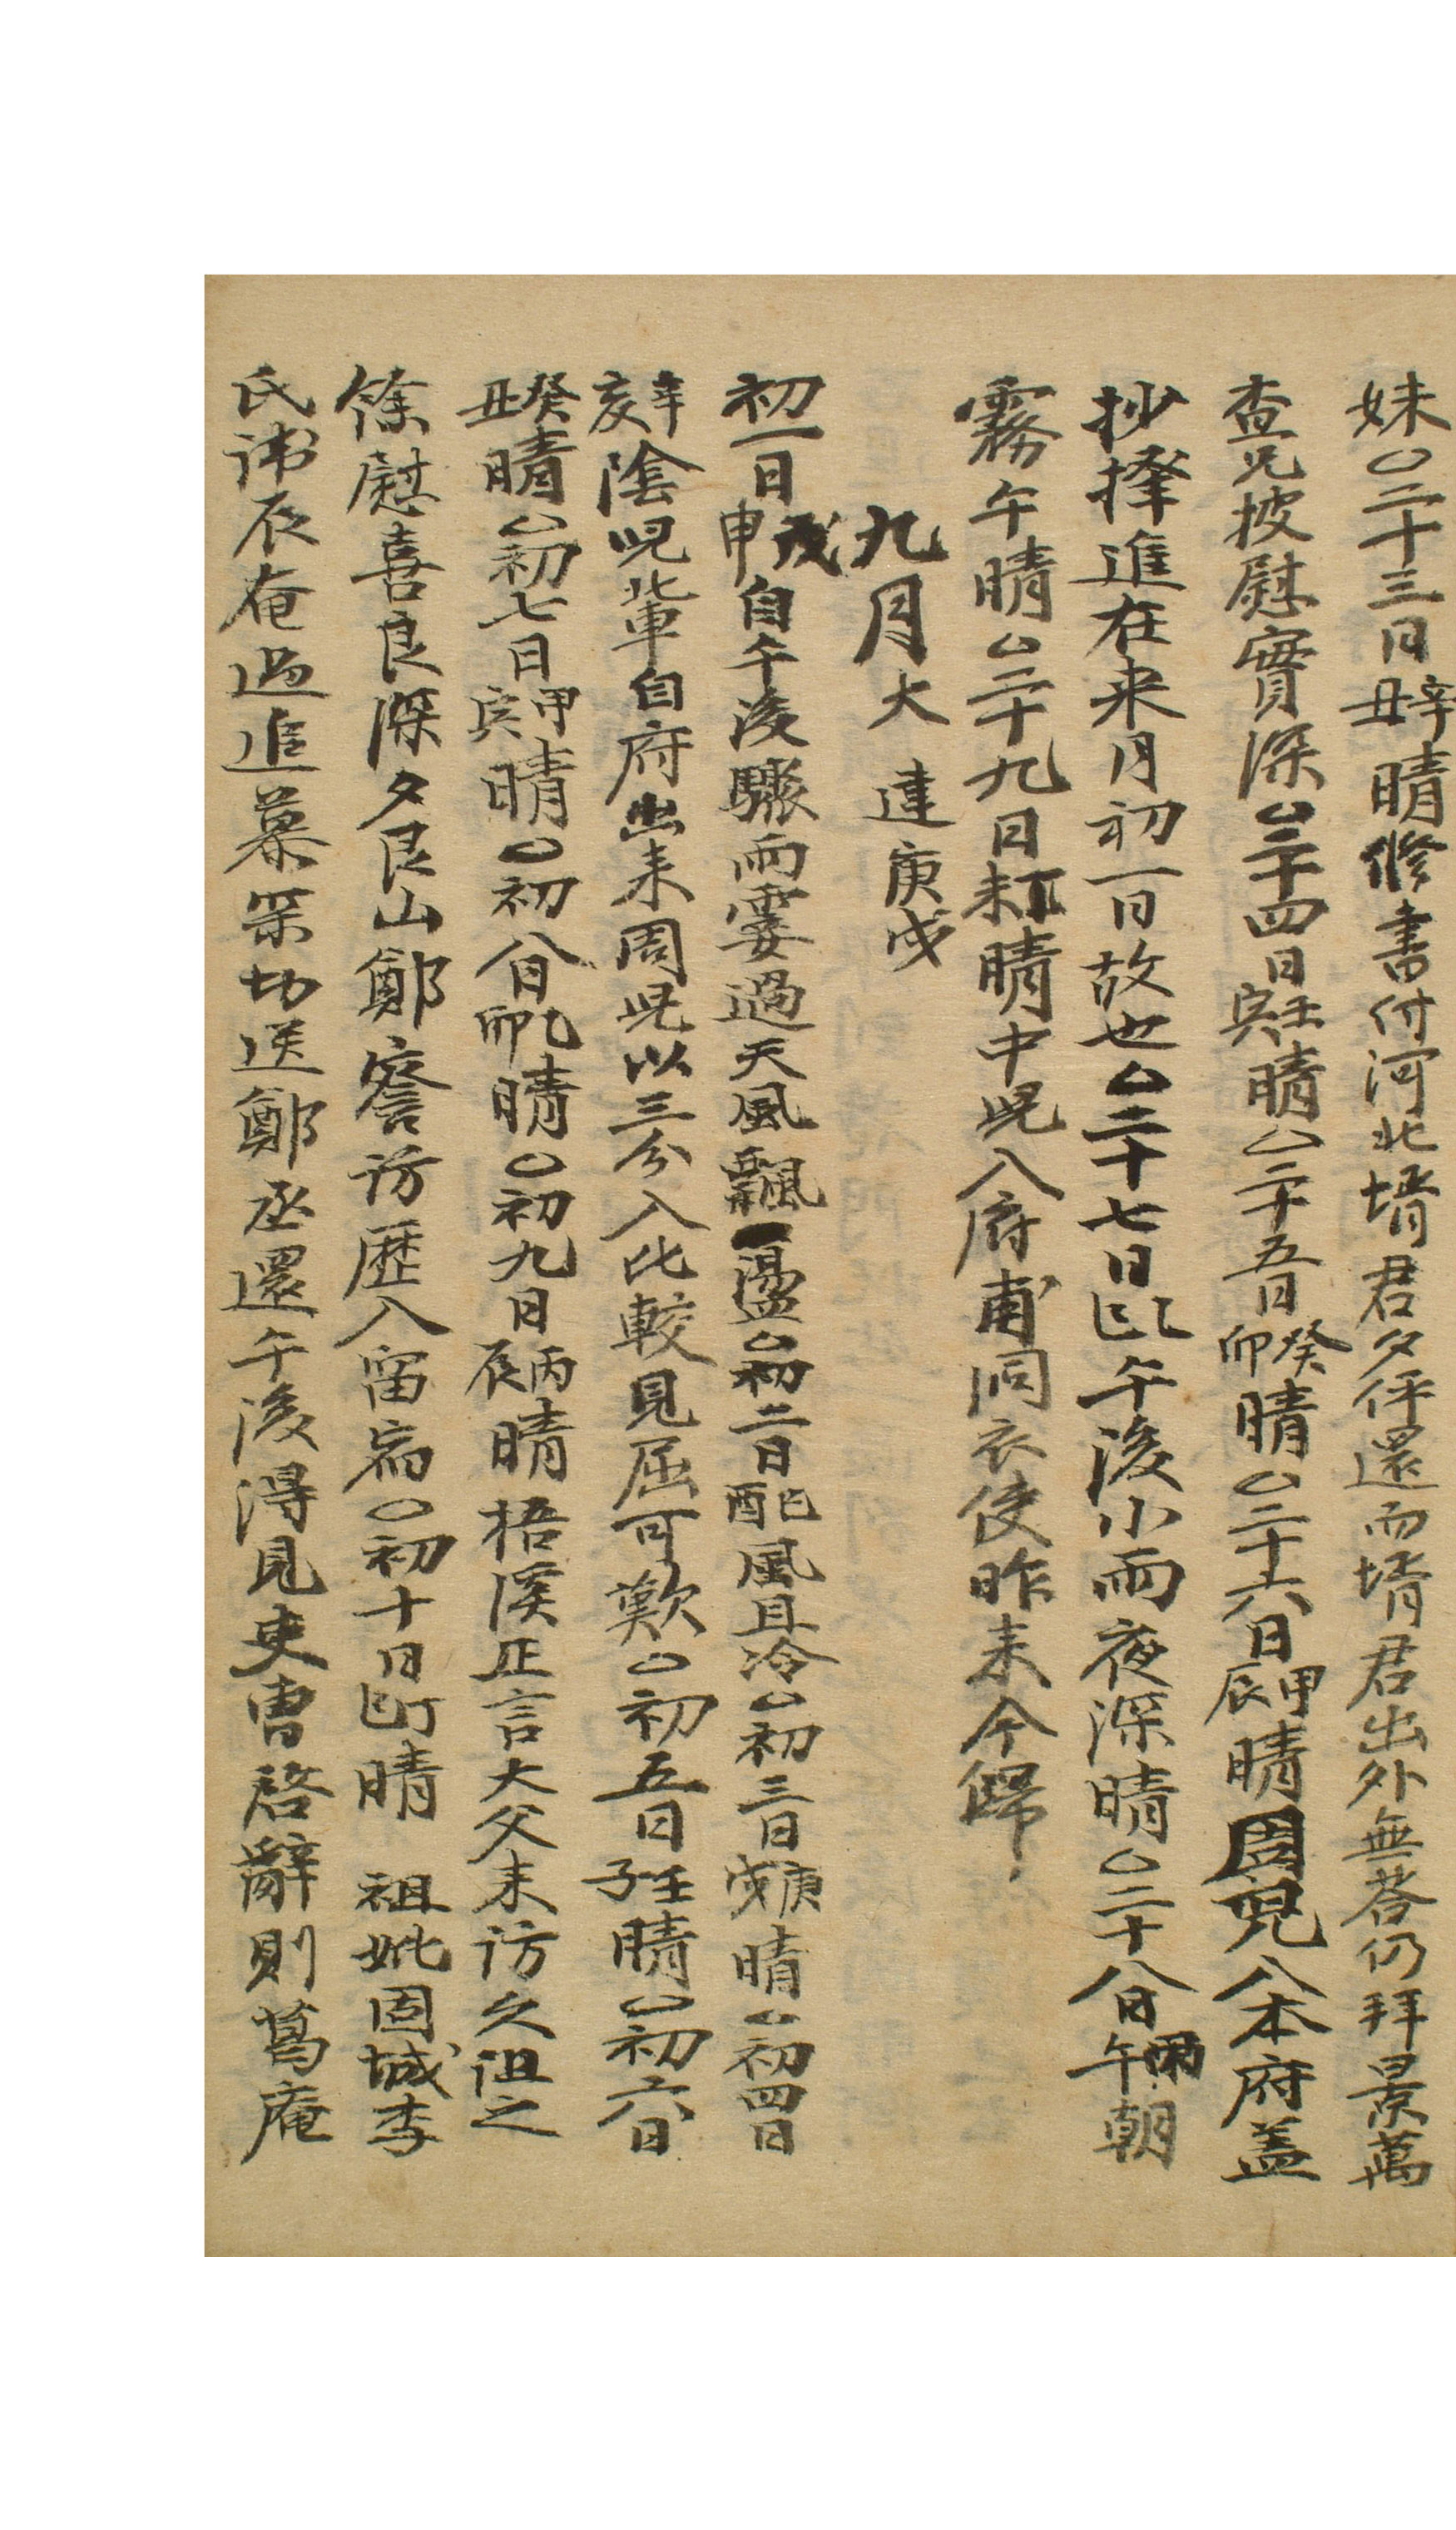 妹○二十三日辛丑晴修書付河北壻君夕伻還而壻君出外無答仍拜景萬
查兄披慰實深○二十四日壬寅晴○二十五日癸卯晴○二十六日甲辰晴周兒入本府盖
抄擇進在来月初一日故也○二十七日乙巳午後小雨夜深晴○二十八日丙午朝
霧午晴○二十九日丁未晴中児入府甫洞衣使昨来今歸
九月大 建庚戌
初一日戊申自午後驟雨霎過天風飄盪○初二日己酉風且冷○初三日庚戌晴○初四日
辛亥陰児輩自府出来周児以三分入比較見屈可歎○初五日壬子晴○初六日
癸丑晴○初七日甲寅晴○初八日乙卯晴○初九日丙辰晴梧溪正言大父来访久阻之
餘慰喜良深夕艮山鄭詧访歴入留宿○初十日丁巳晴 祖妣固城李
氏諱辰奄過追慕采切送鄭丞還午後淂見吏曹啓辭則葛庵